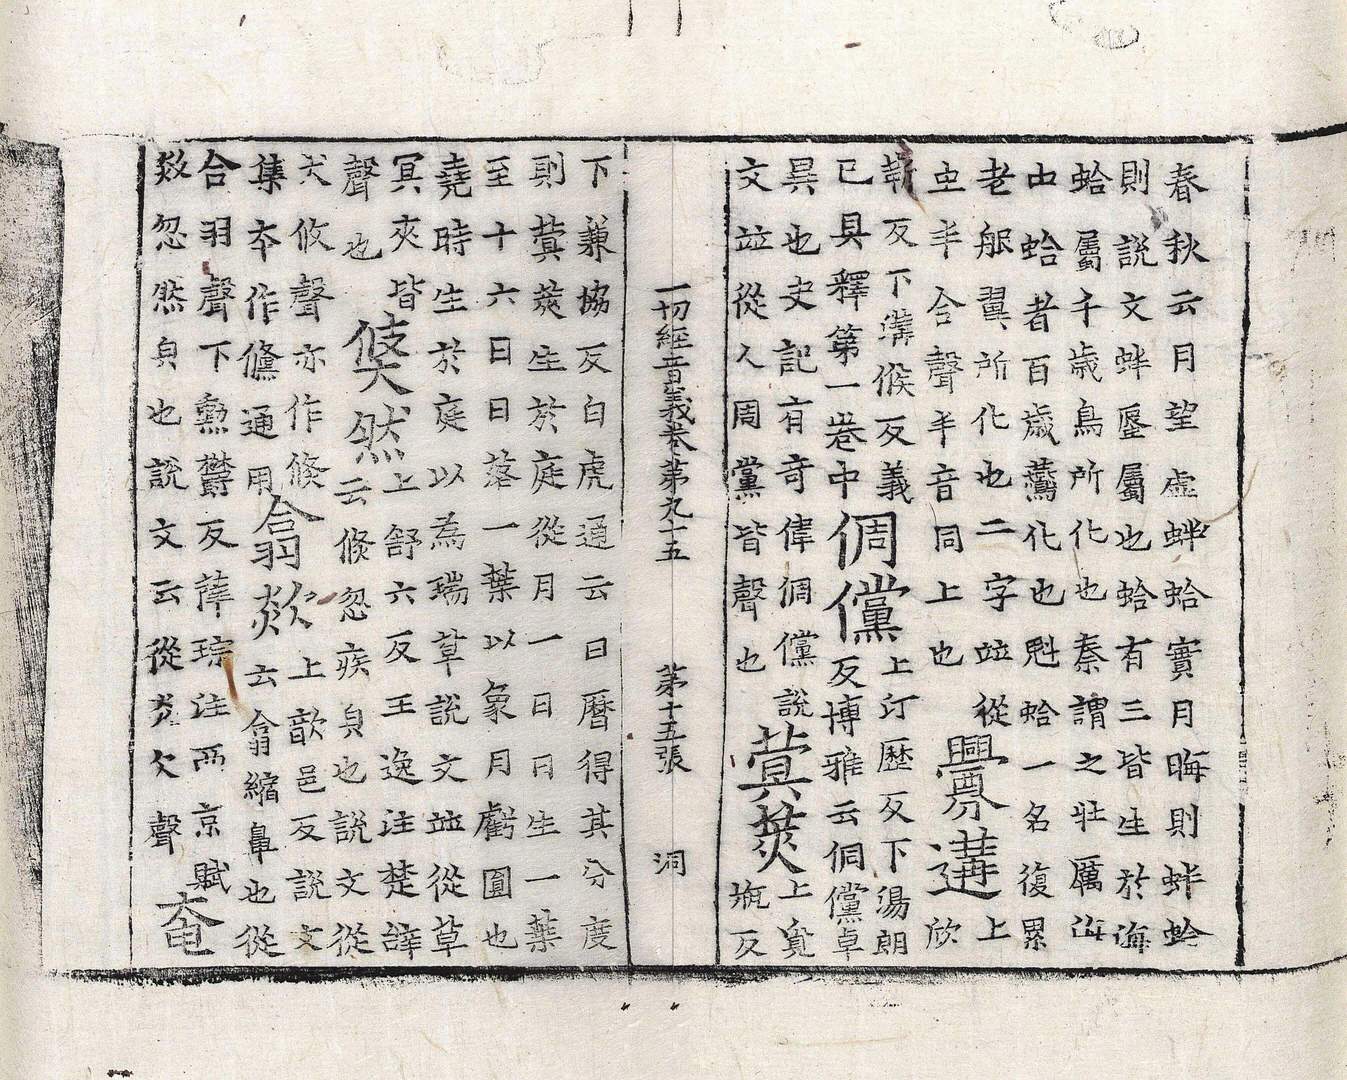 春秋云月望虛蚌蛤實月晦則蚌蛤
則說文蚌蜃屬也蛤有三皆生於海
蛤屬千歲鳥所化也秦謂之壯厲海
中蛤者百歲鷰化也魁蛤一名復累
老服翼所化也二字竝從
虫半合聲半音同上也 釁遘 上欣
靳反下溝候反義
已具釋第一卷中 倜儻 上汀歷反下湯朗反博雅云倜儻卓
異也史記有奇偉倜儻說
文竝從人周黨皆聲也 蓂莢 上覓瓶反
一切經音義卷第九十五 第十五張 洞
下兼協反白虎通云日曆得其分度
則蓂莢生於庭從月一日日生一葉
至十六日日落一葉以象月虧圓也
堯時生於庭以為瑞草說文竝從草
冥夾皆
聲也 倐然 上舒六反王逸注楚辭云倏忽疾皃也說文從
犬攸聲亦作倏
集本作儵通用 翕欻 上歆邑反說文云翕縮鼻也從
合羽聲下勳鬱反薛琮注西京賦
欻忽然皃也說文云從炎欠聲 奄